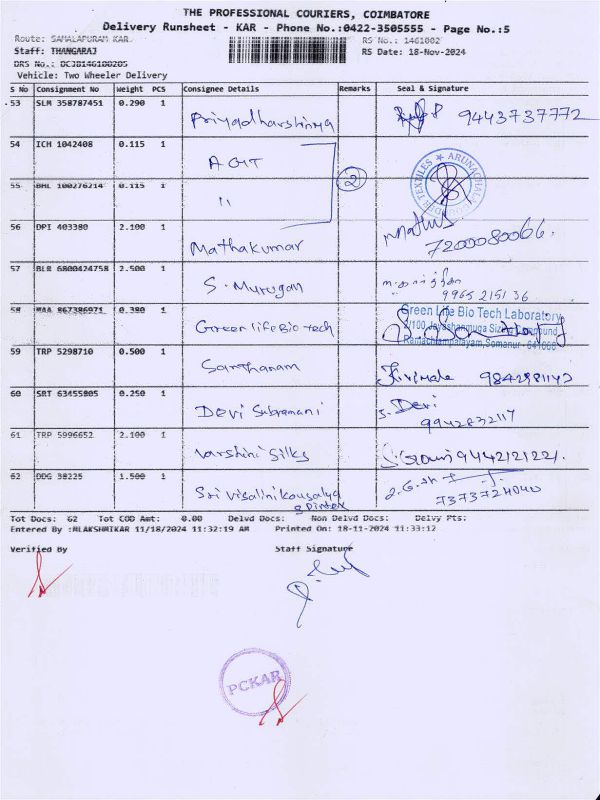 THE PROFESSIONAL COURIERS, COIMBATORE
Delivery Runsheet - KAR - Phone No.:0422-3505555 - Page No.:5
Route: SAMALAPURAM KAR.
RS No.: 1461002
Staff: THANGARAJ
RS Date: 18-Nov-2024
DRS No.: DCJB146100205
Vehicle: Two Wheeler Delivery
S No Consignment No Weight PCS Consignee Details Remarks Seal & Signature
53 SLM 358787451 0.290 1 Priyadharshinya 9443737772
54 ICH 1042408 0.115 1 A GT
2
TEXTILES ARUNACHALA
55 BHL 100276214 0.115 1 "
56 DPI 403380 2.100 1 Mathakumar Mathu
7200080066.
57 BLR 6800424758 2.500 1 S. Murugan
9965215136
58 MAA 867386971 0.380 1 Green life Bio tech
Green Life Bio Tech Laboratory
5/100, Jayashanmuga Sizing Compound,
Ramachiampalayam, Somanur - 641668
59 TRP 5298710 0.500 1 9842981142
60 SRT 63455805 0.250 1 Devi Subramani S. Devi
9942832117
61 TRP 5996652 2.100 1 Varshini Silks 9442121221.
62 DDG 38225 1.500 1 Sri Visalini Kousalya
7373724040
Tot Docs: 62 Tot COD Amt: 0.00 Delvd Docs: Non Delvd Docs: Delvy Pts:
Entered By :MLAKSHMIKAR 11/18/2024 11:32:19 AM Printed On: 18-11-2024 11:33:12
Verified By Staff Signature
PCKAR